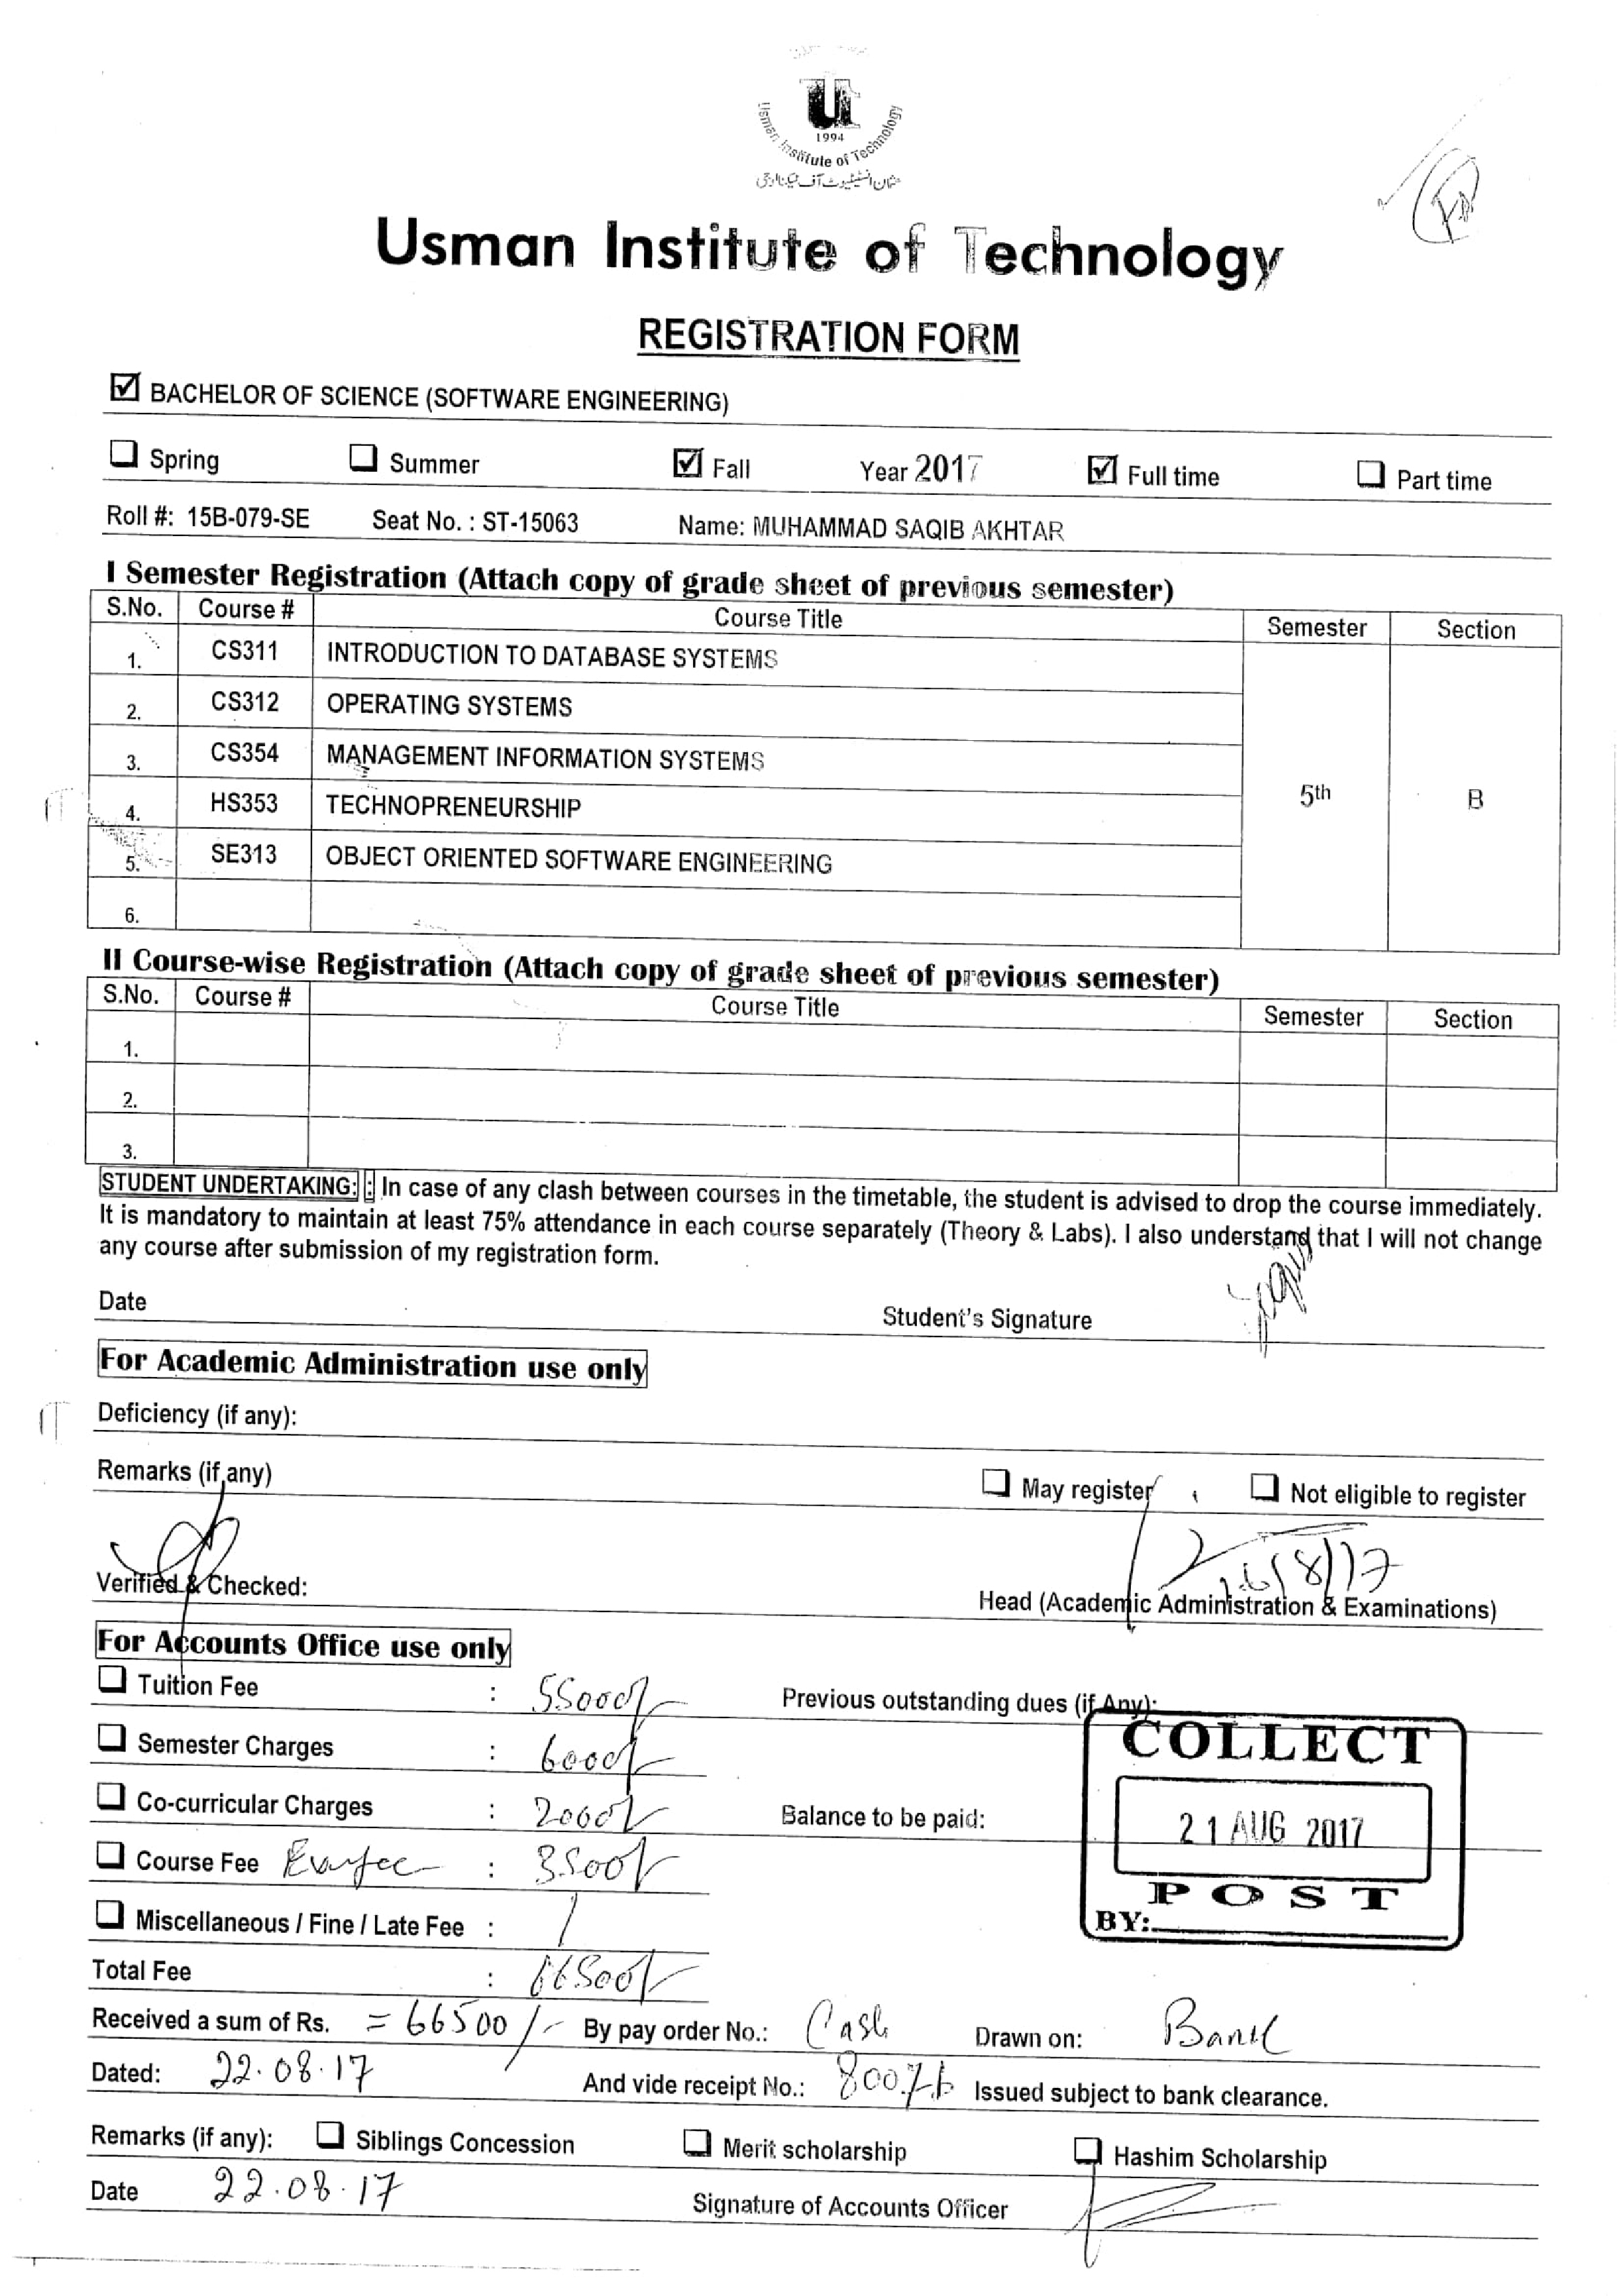 1994
Usman Institute of Technology
عثمان انسٹیٹیوٹ آف ٹیکنالوجی
Usman Institute of Technology
REGISTRATION FORM
☑ BACHELOR OF SCIENCE (SOFTWARE ENGINEERING)
☐ Spring ☐ Summer ☑ Fall Year 2017 ☑ Full time ☐ Part time
Roll #: 15B-079-SE Seat No. : ST-15063 Name: MUHAMMAD SAQIB AKHTAR
I Semester Registration (Attach copy of grade sheet of previous semester)
S.No. Course # Course Title Semester Section
1. CS311 INTRODUCTION TO DATABASE SYSTEMS
2. CS312 OPERATING SYSTEMS
3. CS354 MANAGEMENT INFORMATION SYSTEMS
4. HS353 TECHNOPRENEURSHIP 5th B
5. SE313 OBJECT ORIENTED SOFTWARE ENGINEERING
6.
II Course-wise Registration (Attach copy of grade sheet of previous semester)
S.No. Course # Course Title Semester Section
1.
2.
3.
STUDENT UNDERTAKING: : In case of any clash between courses in the timetable, the student is advised to drop the course immediately.
It is mandatory to maintain at least 75% attendance in each course separately (Theory & Labs). I also understand that I will not change
any course after submission of my registration form.
Date Student's Signature
For Academic Administration use only
Deficiency (if any):
Remarks (if any) ☐ May register ☐ Not eligible to register
Verified & Checked: Head (Academic Administration & Examinations)
For Accounts Office use only
☐ Tuition Fee : 55000/- Previous outstanding dues (if Any):
☐ Semester Charges : 6000/-
☐ Co-curricular Charges : 2000/- Balance to be paid:
☐ Course Fee Exam fee : 3500/-
☐ Miscellaneous / Fine / Late Fee : /
Total Fee : 66500/-
COLLECT
21 AUG 2017
POST
BY:
Received a sum of Rs. = 66500/- By pay order No.: Cash Drawn on: Bank
Dated: 22.08.17 And vide receipt No.: Issued subject to bank clearance.
Remarks (if any): ☐ Siblings Concession ☐ Merit scholarship ☐ Hashim Scholarship
Date 22.08.17 Signature of Accounts Officer